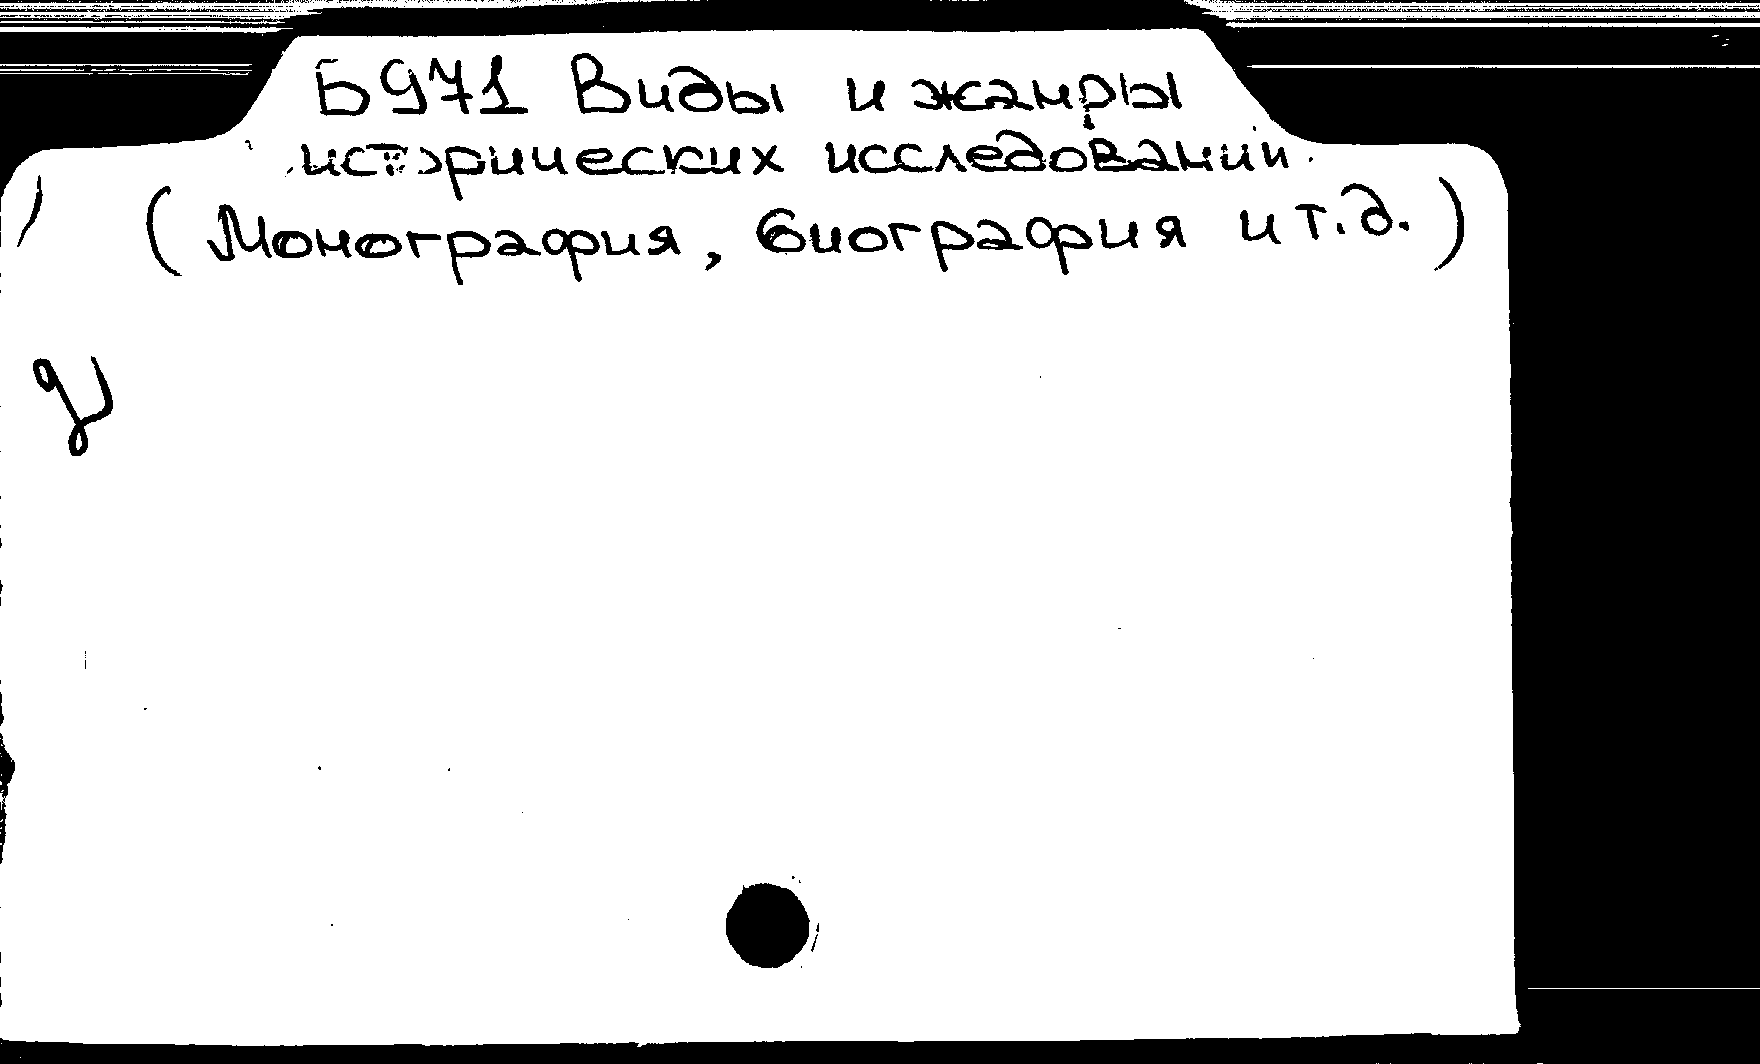 Б971 Виды и жанры
исторических исследований.
(Монография, биография и т.д.)